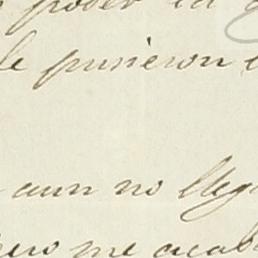 poder en
le pusieron
aun no lleg
pero me acab